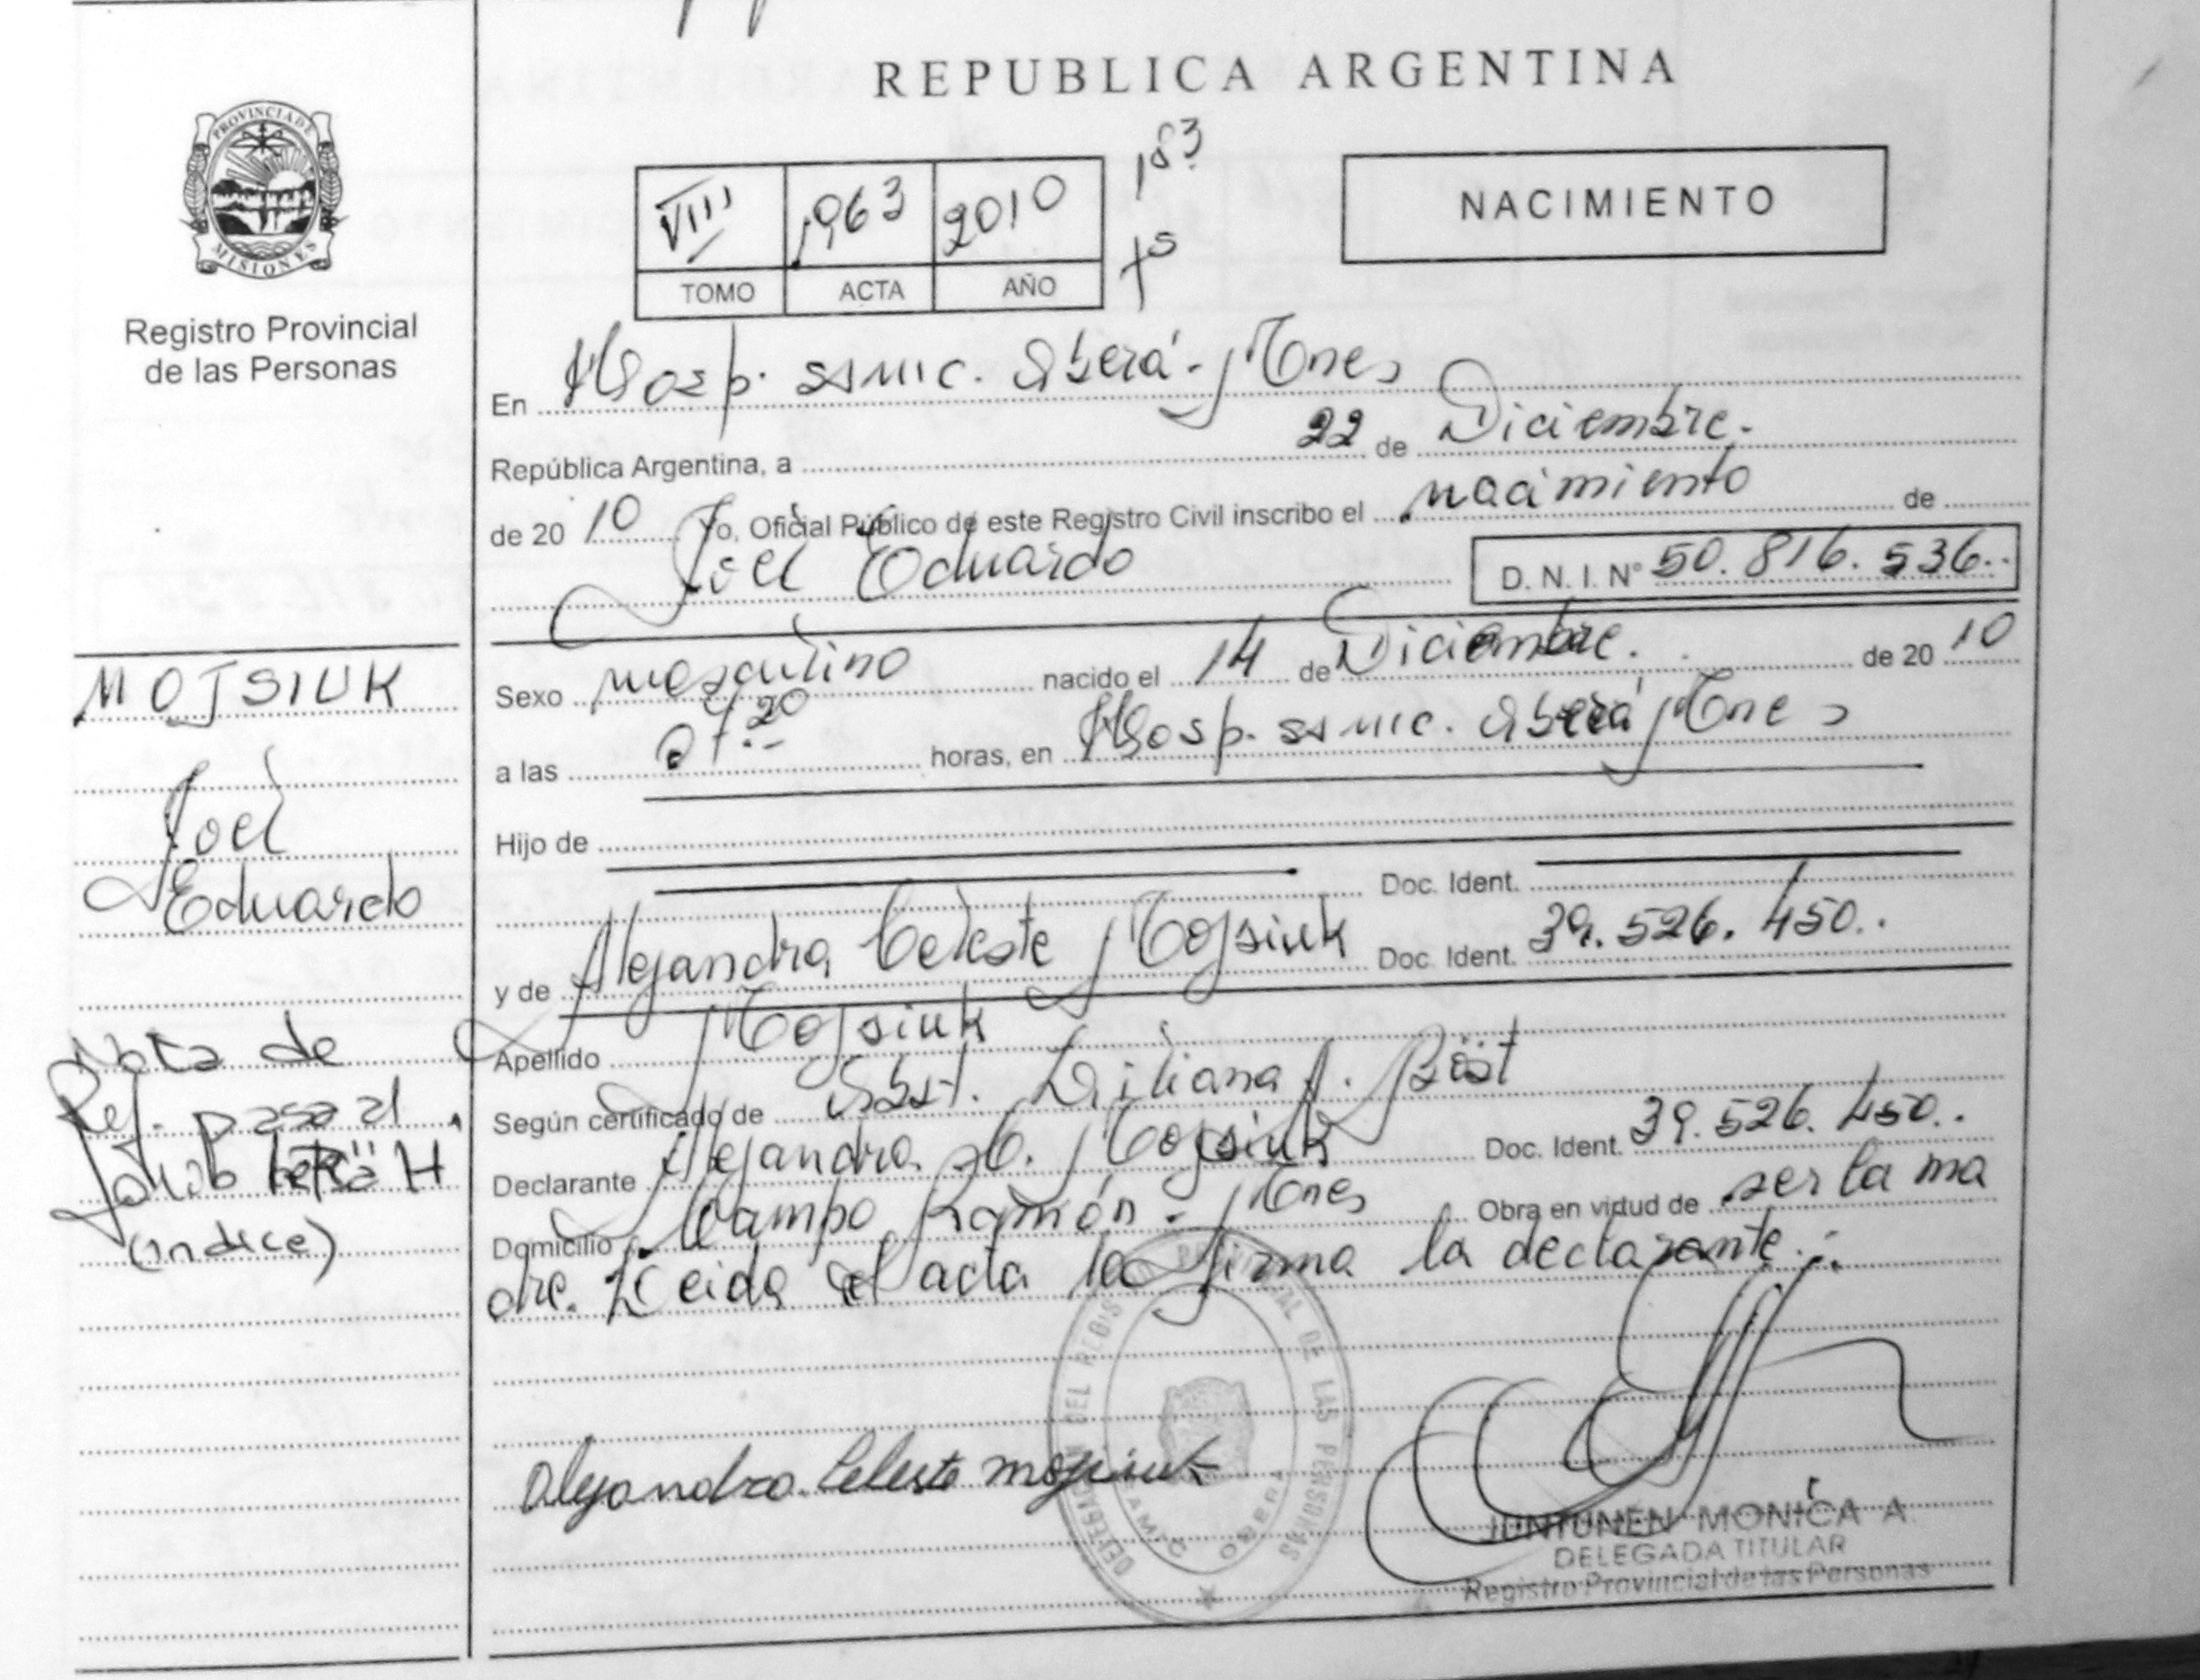 REPUBLICA ARGENTINA
PROVINCIA DE
MISIONES
Registro Provincial
de las Personas
VIII 1963 2010
TOMO ACTA AÑO
183
NACIMIENTO
En Hosp. SSMIC. Oberá - Mnes
República Argentina, a 22 de Diciembre.
de 20 10 Yo, Oficial Público de este Registro Civil inscribo el nacimiento de
Joel Eduardo D. N. I. N° 50.816.536..
MOJSIUK
Joel
Eduardo
Sexo masculino nacido el 14 de Diciembre. de 20 10
a las horas, en Hosp. SSMIC. Oberá Mnes
Hijo de
Doc. Ident.
y de Alejandra Celeste Mojsiuk Doc. Ident. 39.526.450..
Apellido Mojsiuk
Según certificado de Obst. Liliana Böst
Declarante Alejandra C. Mojsiuk Doc. Ident. 39.526.450..
Domicilio Campo Ramón - Mnes Obra en virtud de ser la ma
dre. Leida el acta la firma la declarante.
Nota de
Ref. pasa al
(indice)
Alejandra Celeste Mojsiuk
DELEGACION DEL REGISTRO PROVINCIAL DE LAS PERSONAS
OBERA
JUNTUNEN MONICA A
DELEGADA TITULAR
Registro Provincial de las Personas